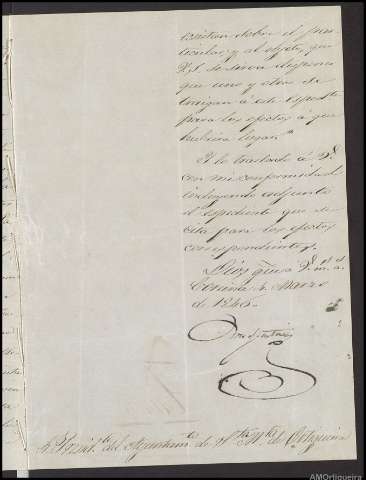 sobre el par-
ticular, y al objeto, que
V.S. se sirva disponer
que uno y otro se
traigan á este
para los efectos á que
hubiere lugar.
Y lo traslado á V.S.
con mi conformidad
incluyendo adjunto
el espediente que se
cita para los efectos
correspondientes.
Dios gue á V.S. ms. as.
Coruña de Marzo
de 184
del Ayuntamto. de Sta. Mta. de Ortigueira
AMOrtigueira